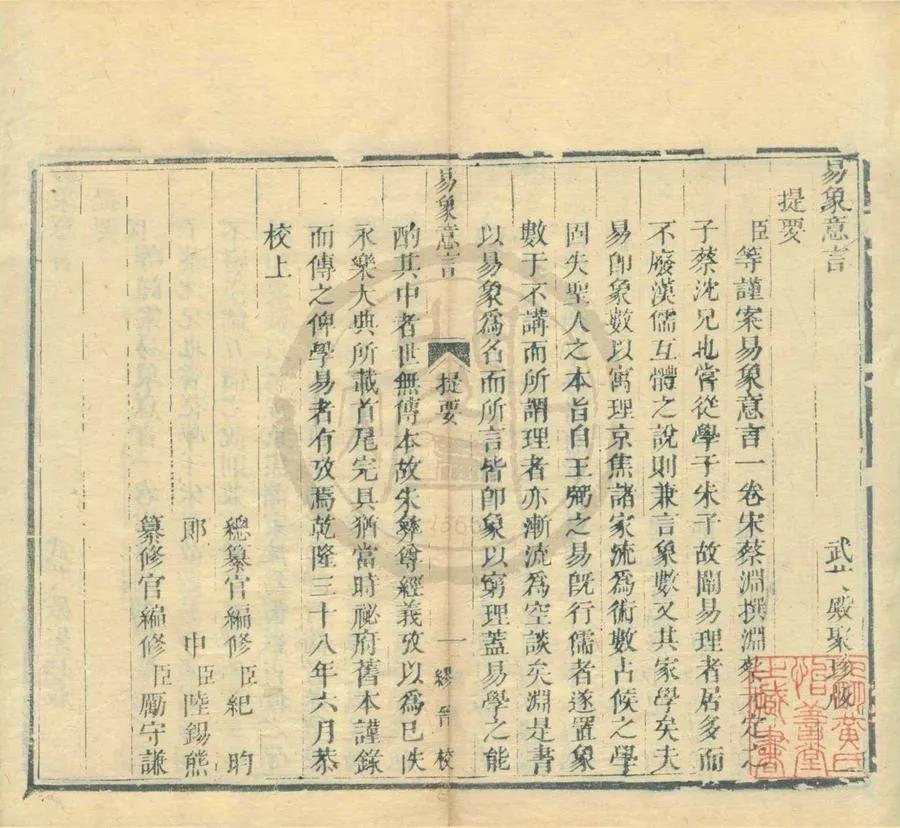 易象意言
武英殿聚珍版
提要
臣等謹案易象意言一卷宋蔡淵撰淵蔡元定之
子蔡沈兄也嘗從學于朱子故闡易理者居多而
不廢漢儒互體之說則兼言象數又其家學矣夫
易卽象數以寓理京焦諸家流爲術數占候之學
固失聖人之本旨自王弼之易旣行儒者遂置象
數于不講而所謂理者亦漸流爲空談矣淵是書
以易象爲名而所言皆卽象以窮理蓋易學之能
易象意言
提要
一
繆晉校
酌其中者世無傳本故朱彝尊經義攷以爲已佚
永樂大典所載首尾完具猶當時祕府舊本謹錄
而傳之俾學易者有攷焉乾隆三十八年六月恭
校上
總纂官編修臣紀昀
郞中臣陸錫熊
纂修官編修臣勵守謙